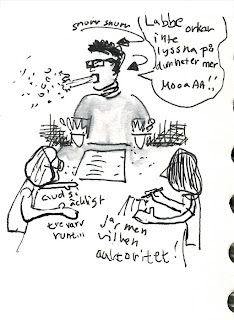 snurr snurr
Labbe orkar
inte
lyssna på
dumheter mer
MooaAA!!
Gud så
äckligt
tre varv
runt...
ja, men
vilken
auktoritet!